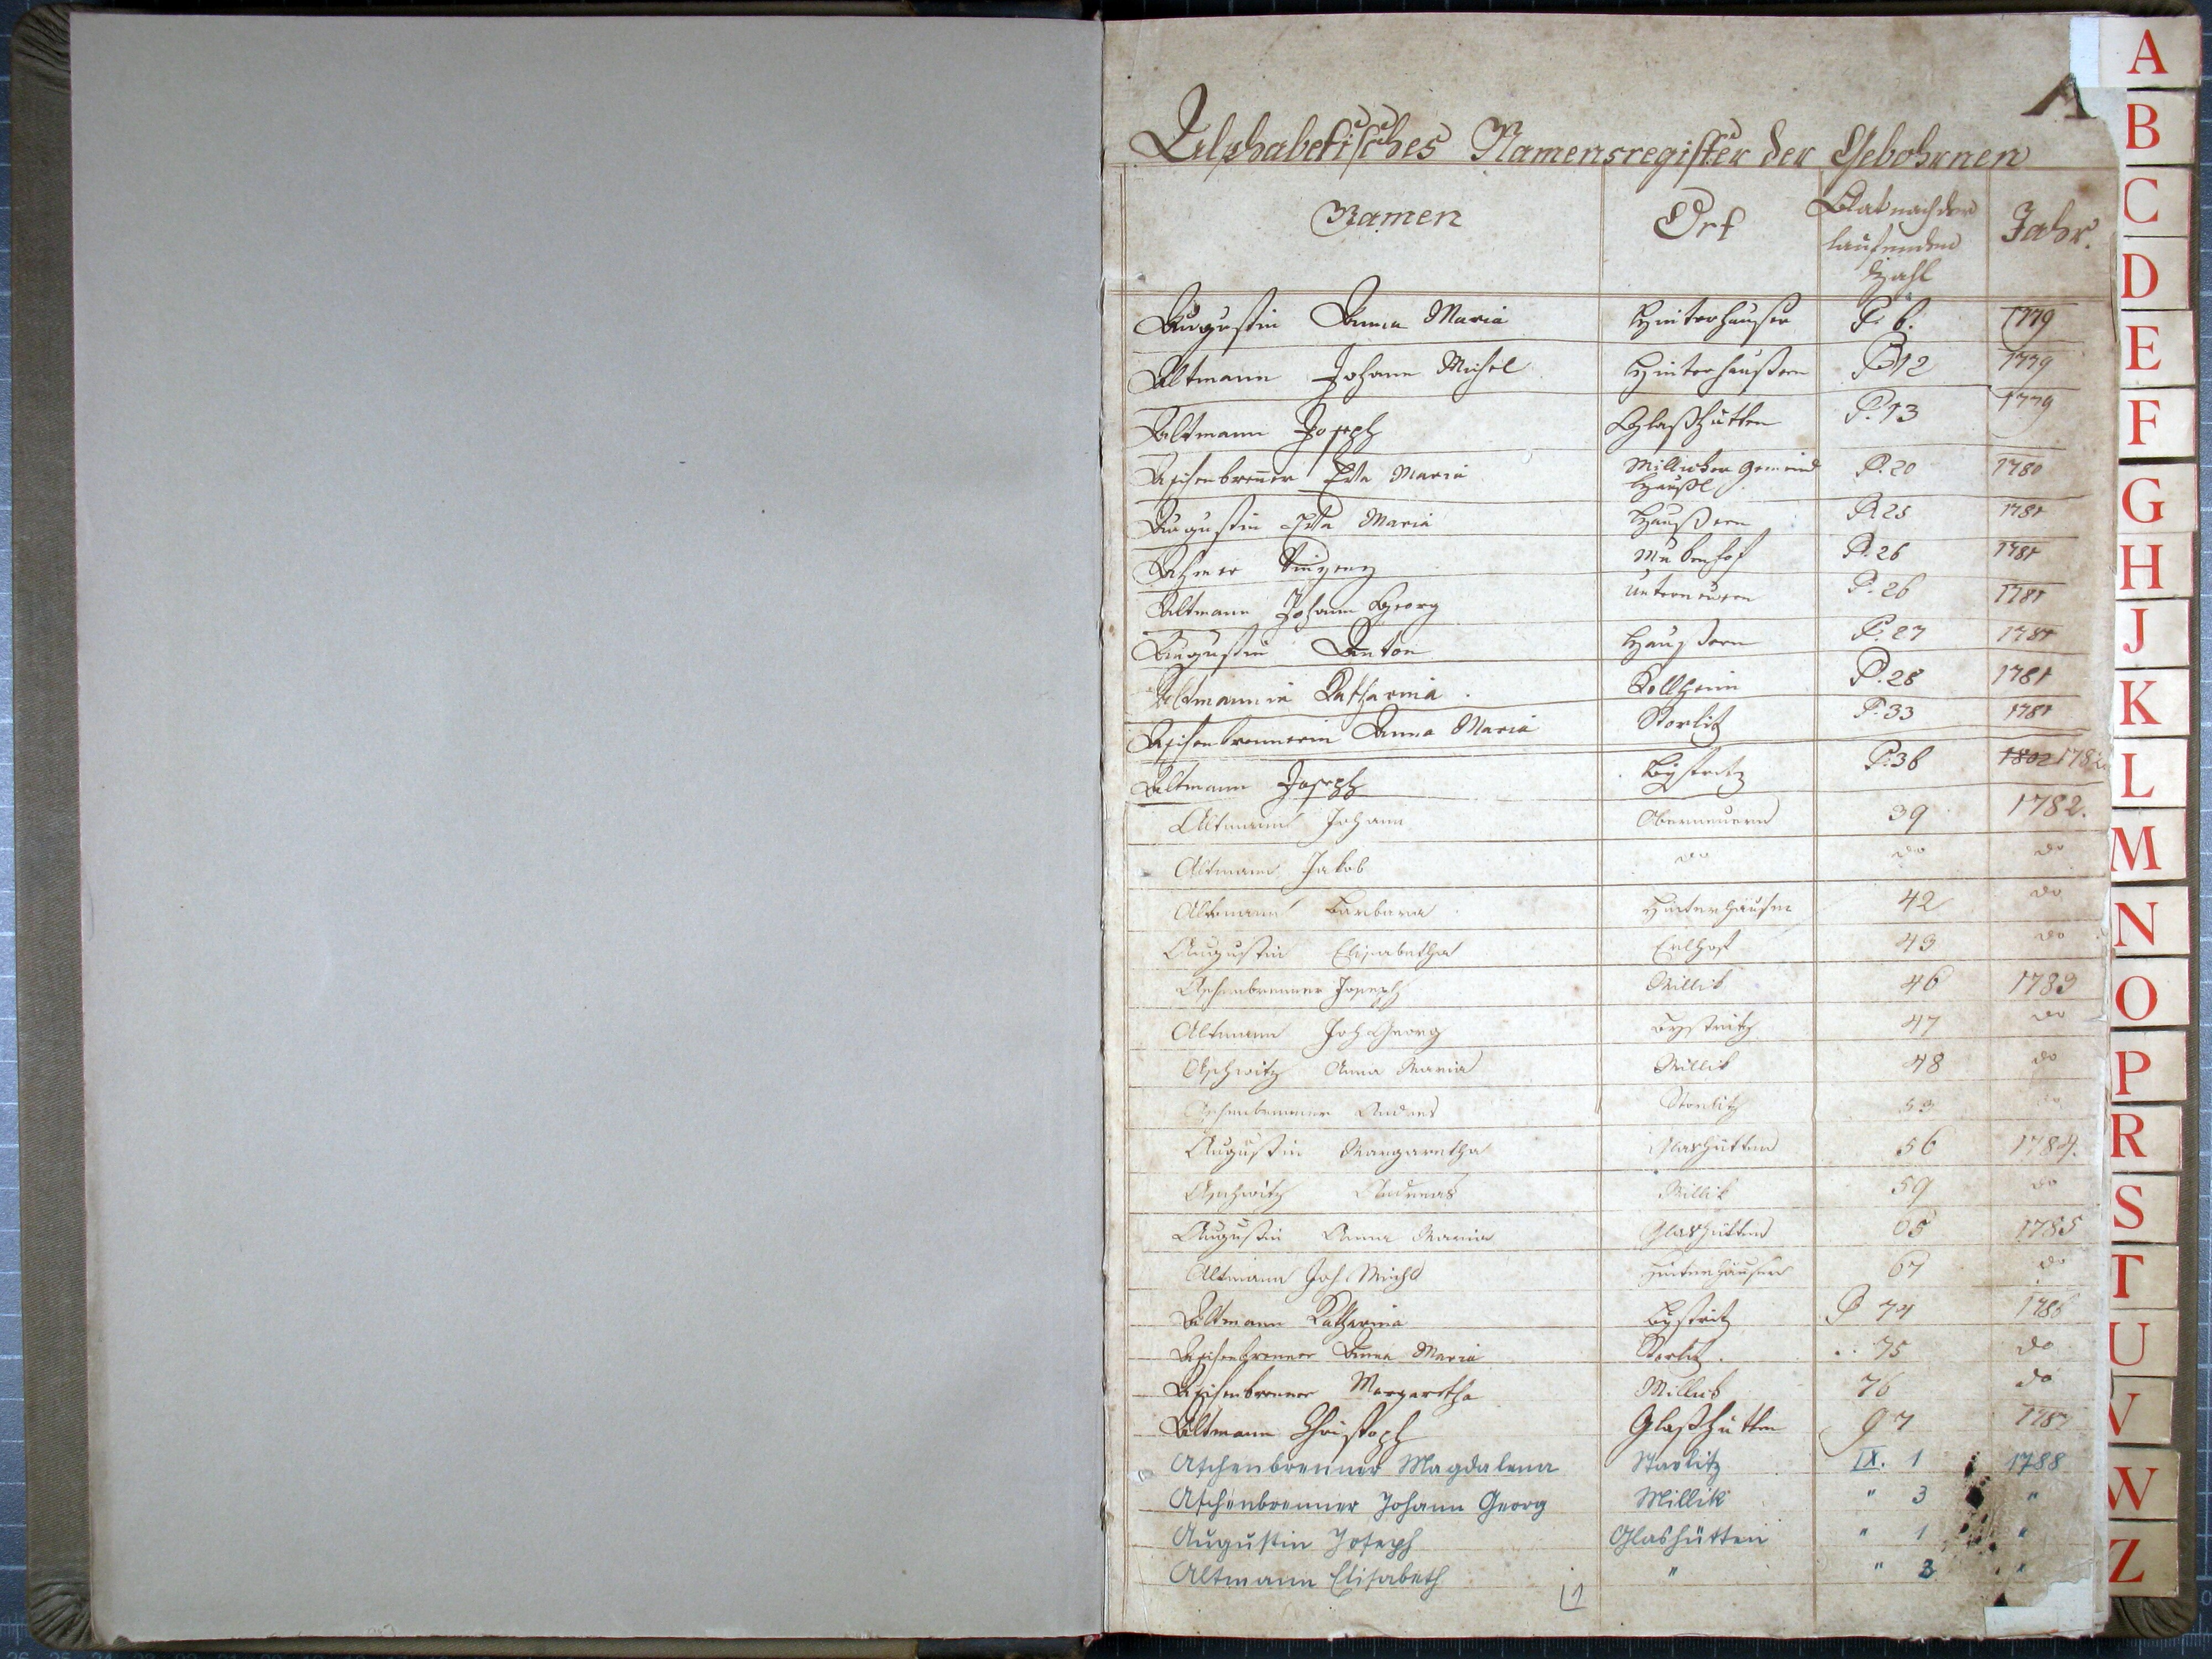 A
Alphabetisches Namensregister der Gebohrnen
Namen Ort Blat nach der laufenden Zahl Jahr.
Augustin Anna Maria Hinterhauser P. 6. 1779
Altmann Johann Michel Hinterhaußern P 12 1779
Altmann Joseph Glaßhütten P. 13 1779
Aschenbrenner Eva Maria Milliker Gemeind Häußl P. 20 1780
Augustin Eva Maria Haußern P. 25 1781
P. 26 1781
Altmann Johann Georg Unterneuern P. 26 1781
Augustin Anton Haußern P. 27 1781
Altmannin Katharina Kollheim P. 28 1781
Aschenbrennerin Anna Maria Storlitz P. 33 1781
Altmann Joseph Bystritz P. 36 1802 1782.
Altmann Johann Oberneuern 39 1782.
Altmann Jakob do do do
Altmann Barbara Hinterhäuser 42 do
Augustin Elisabetha 43 do
Aschenbrenner Joseph Millik 46 1783
Altmann Joh Georg Bystritz 47 do
Aschwitz Anna Maria Millik 48 do
Aschenbrenner Andres Storlitz 53 do
Augustin Margaretha Glashütten 56 1784.
Aschwitz Andreas Millik 59 do
Augustin Anna Maria Glashütten 65 1785
Altmann Joh Michl Hinterhäuser 67 do
Altmann Katharina Bystritz P 74 1786
Aschenbrenner Anna Maria Storlitz . 75 do
Aschenbrenner Margaretha Millik 76 do
Altmann Christoph Glaßhütten 97 1787
Aschenbrenner Magdalena Starlitz IX. 1 1788
Aschenbrenner Johann Georg Millik " 3 "
Augustin Joseph Glashütten " 1 "
Altmann Elisabeth " " 3 "
1
A
B
C
D
E
F
G
H
J
K
L
M
N
O
P
R
S
T
U
V
W
Z